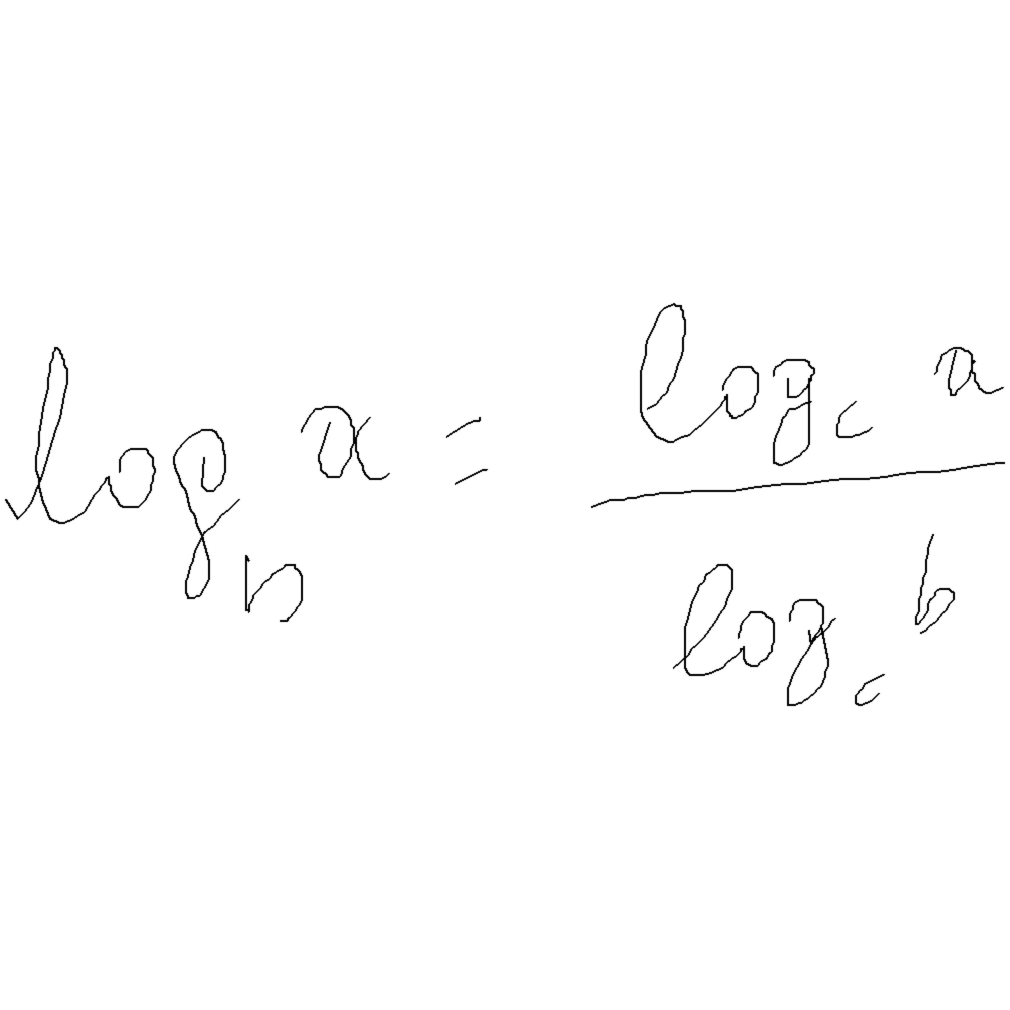 log_b a = \frac{log_c a}{log_c b}